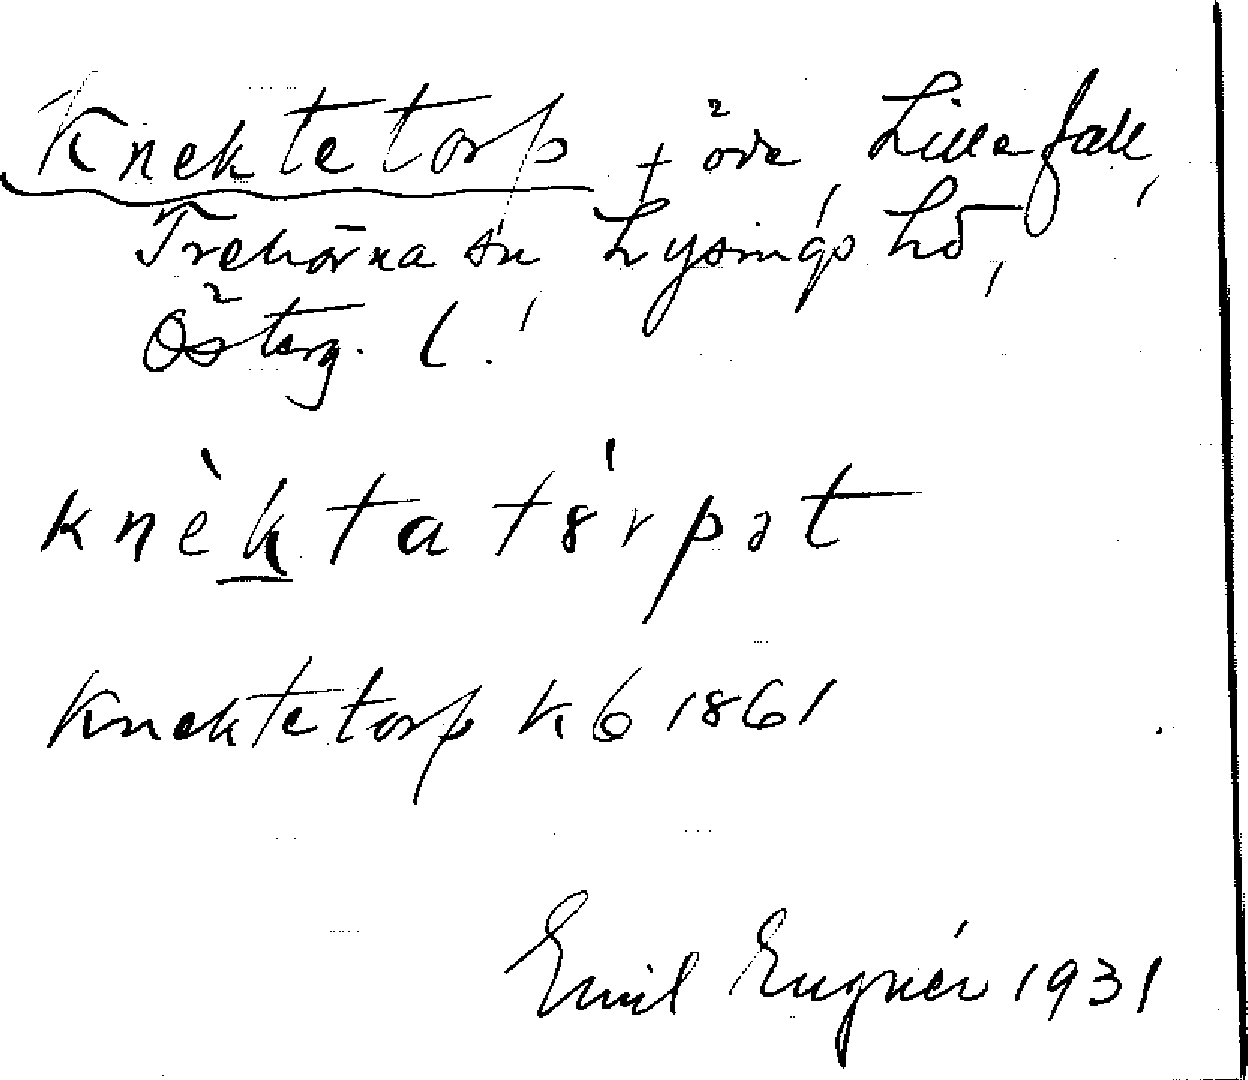 Knektetorp t öde Lillefall,
Trehörna sn Lysings hd,
Österg. l.
knèktatórpət
Knektetorp k6 1861
Emil Eugnér 1931